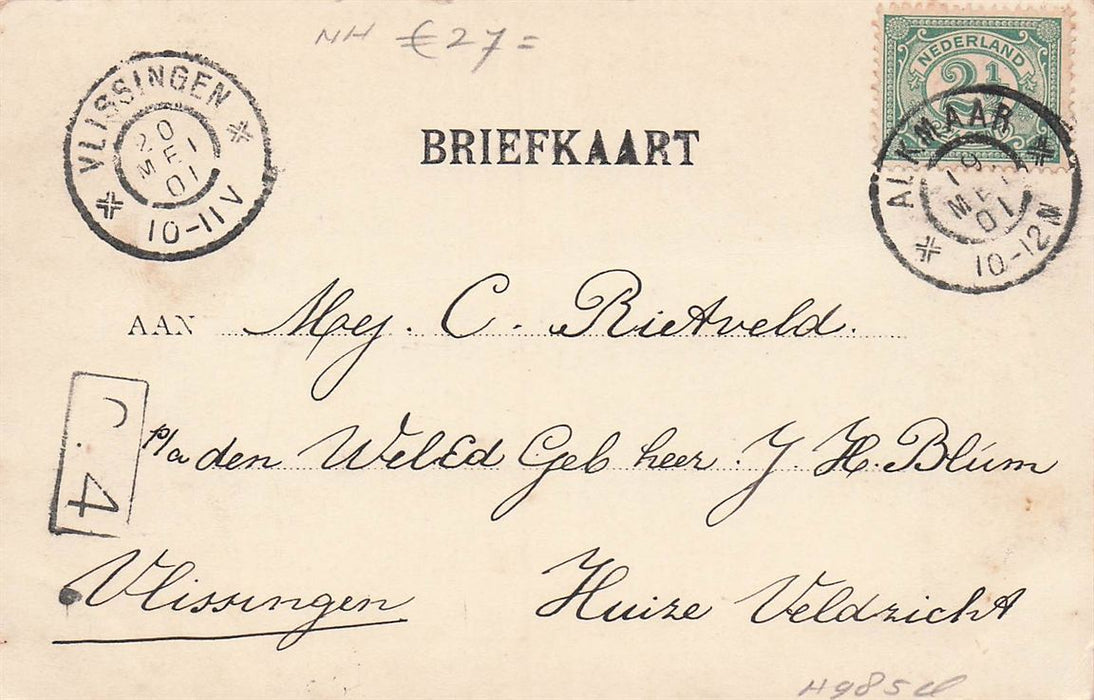 NH €27=
NEDERLAND
2½
VLISSINGEN
20
MEI
01
10-11V
ALKMAAR
19
MEI
01
10-12N
BRIEFKAART
AAN Mej. C. Rietveld.
p/a den WelEd Geb heer. J. H. Blúm
Vlissingen Huize Veldzicht
C. 4